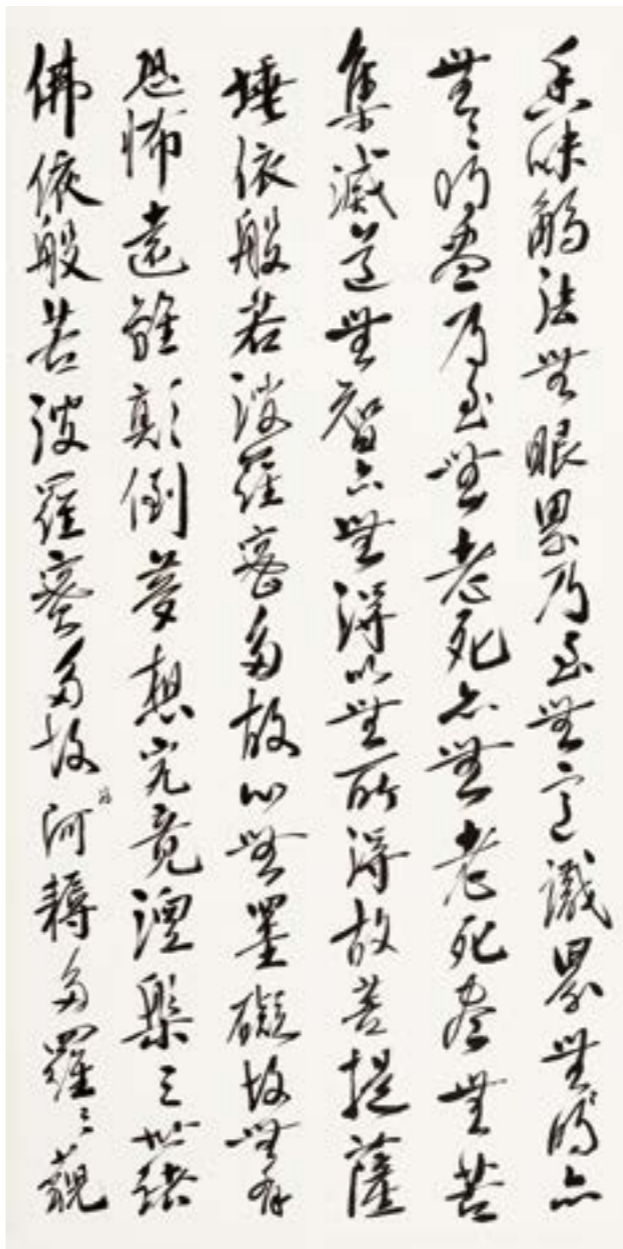 香味觸法無眼界乃至無意識界無明亦
無〻明盡乃至無老死亦無老死盡無苦
集滅道無智亦無得以無所得故菩提薩
埵依般若波羅蜜多故心無罣礙故無有
恐怖遠離顛倒夢想究竟涅槃三世諸
佛依般若波羅蜜多故得阿耨多羅三藐